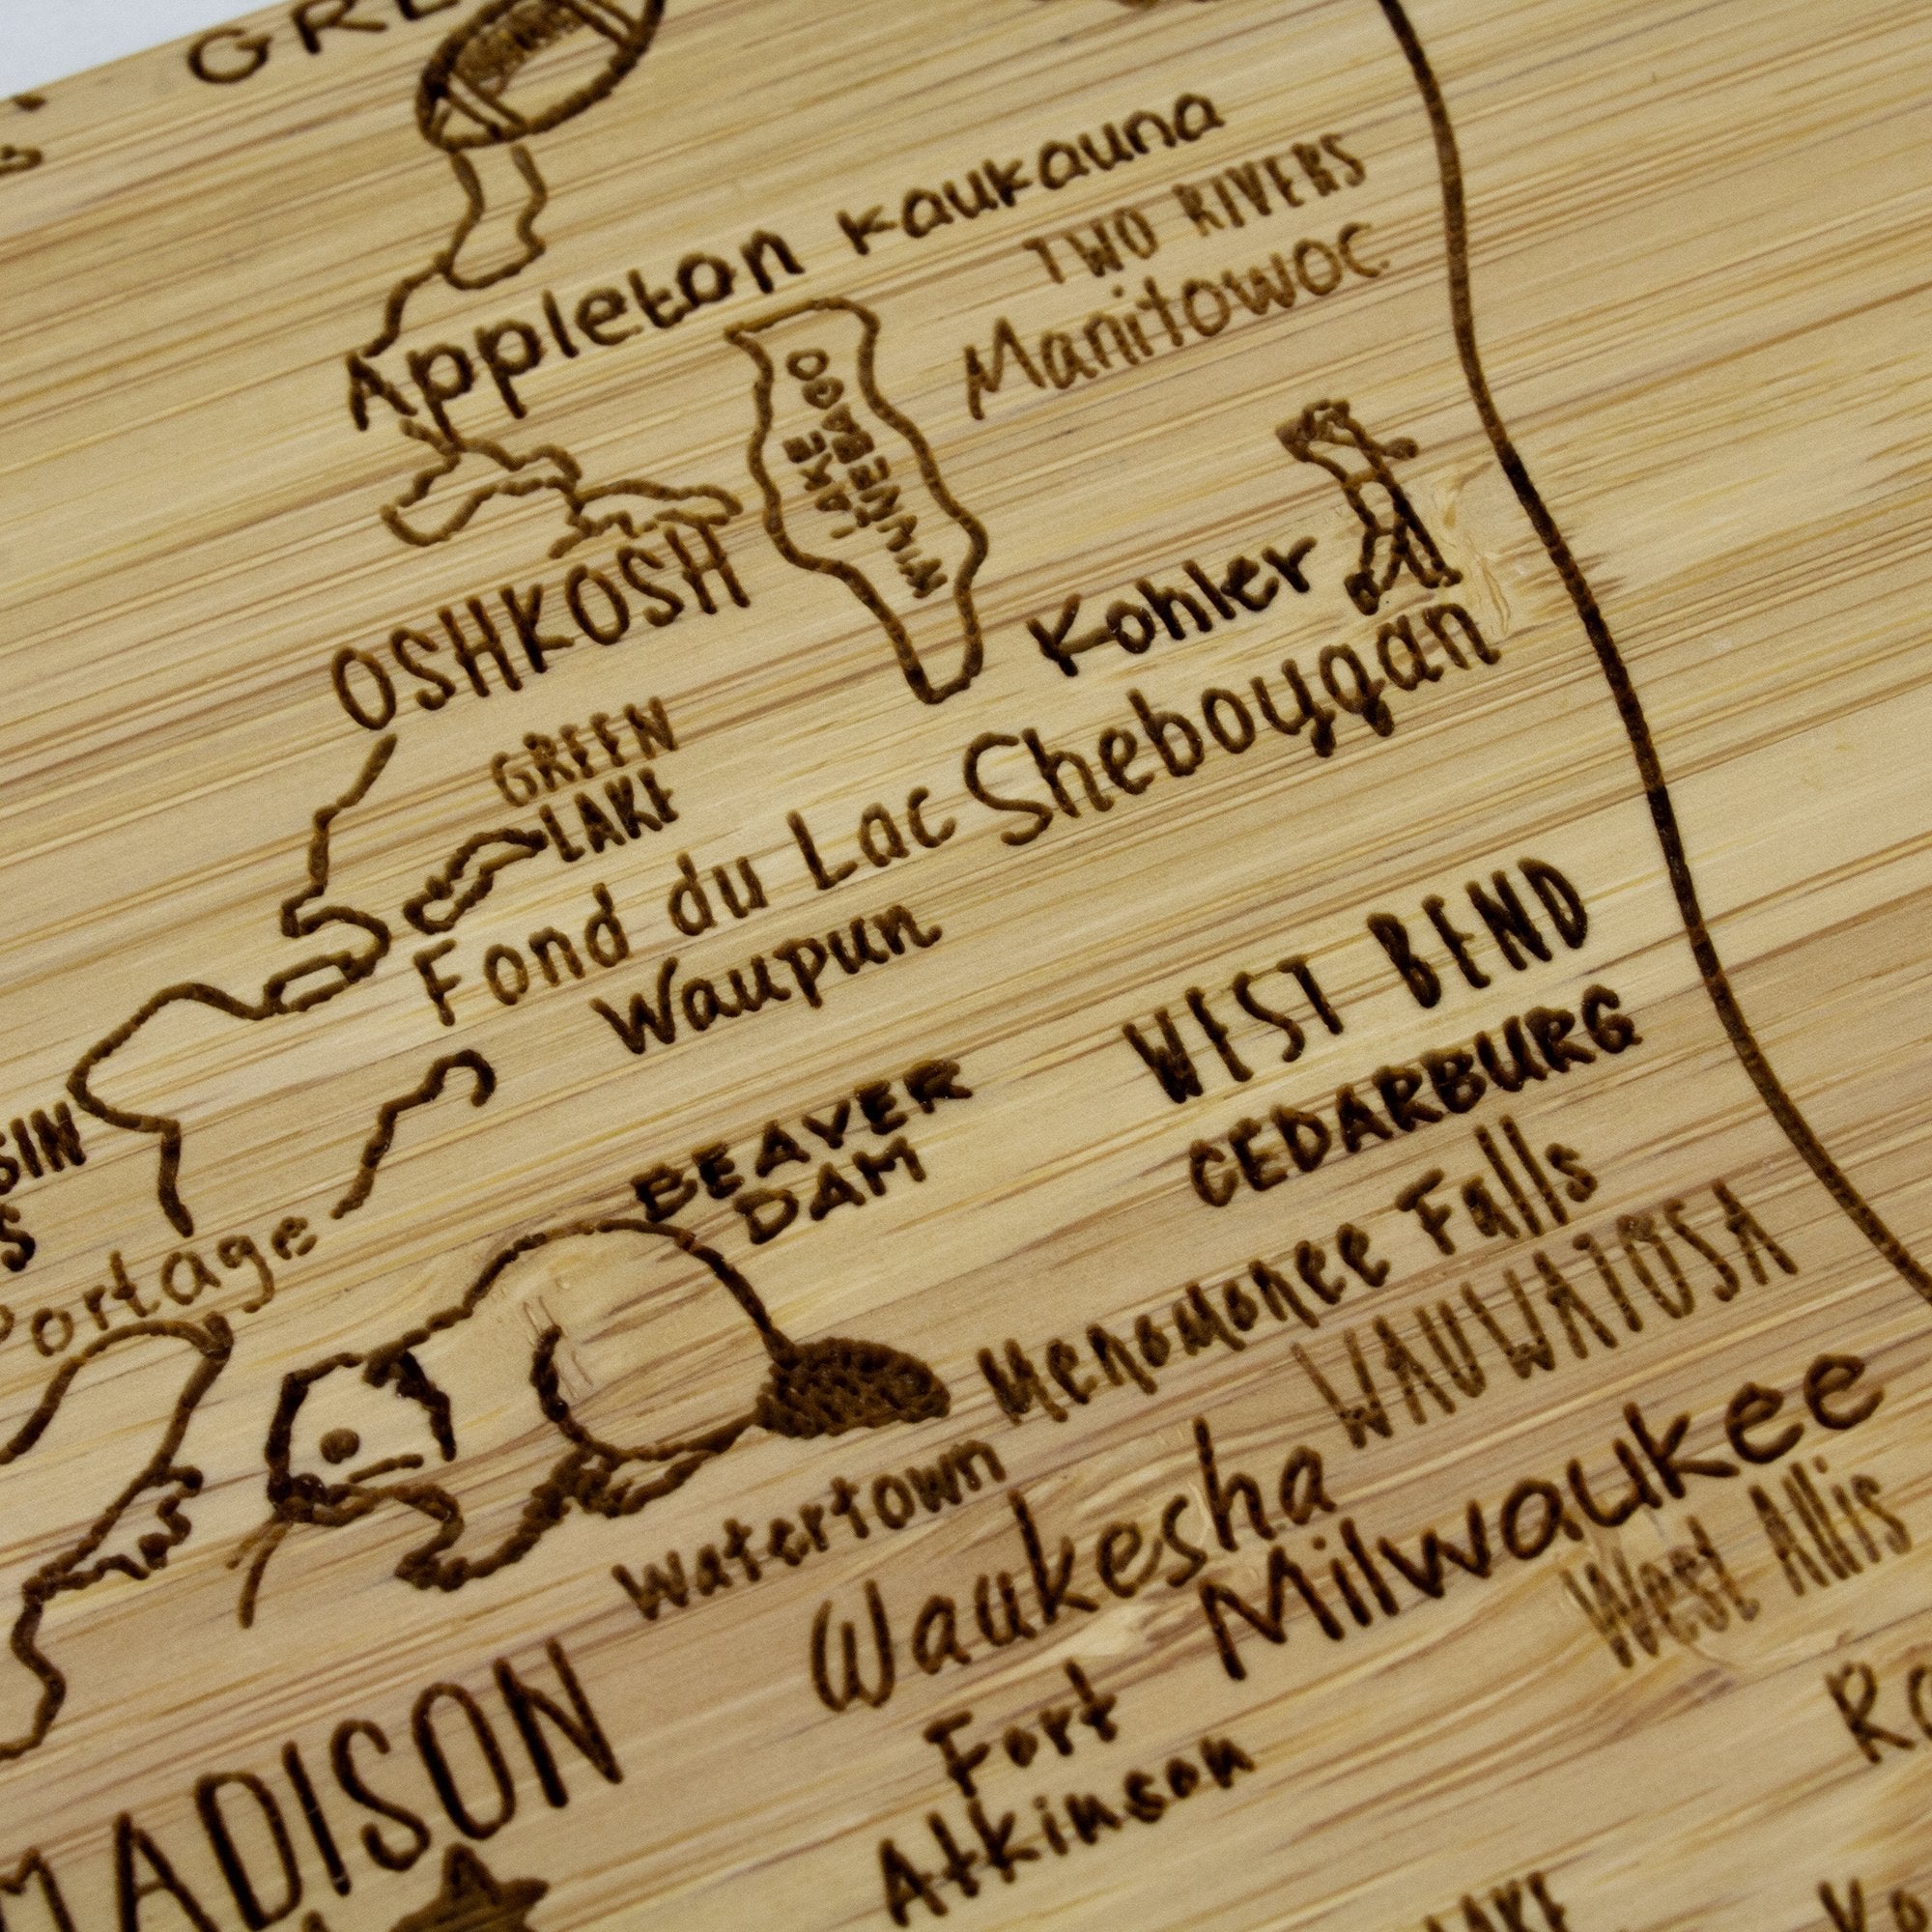 Appleton
Kaukauna
TWO RIVERS
Manitowoc
LAKE
WINNEBAGO
OSHKOSH
Kohler
Sheboygan
GREEN
LAKE
Fond du Lac
Waupun
WEST BEND
CEDARBURG
BEAVER
DAM
Portage
Menomonee Falls
WAUWATOSA
Watertown
Waukesha
Milwaukee
West Allis
MADISON
Fort
Atkinson
LAKE